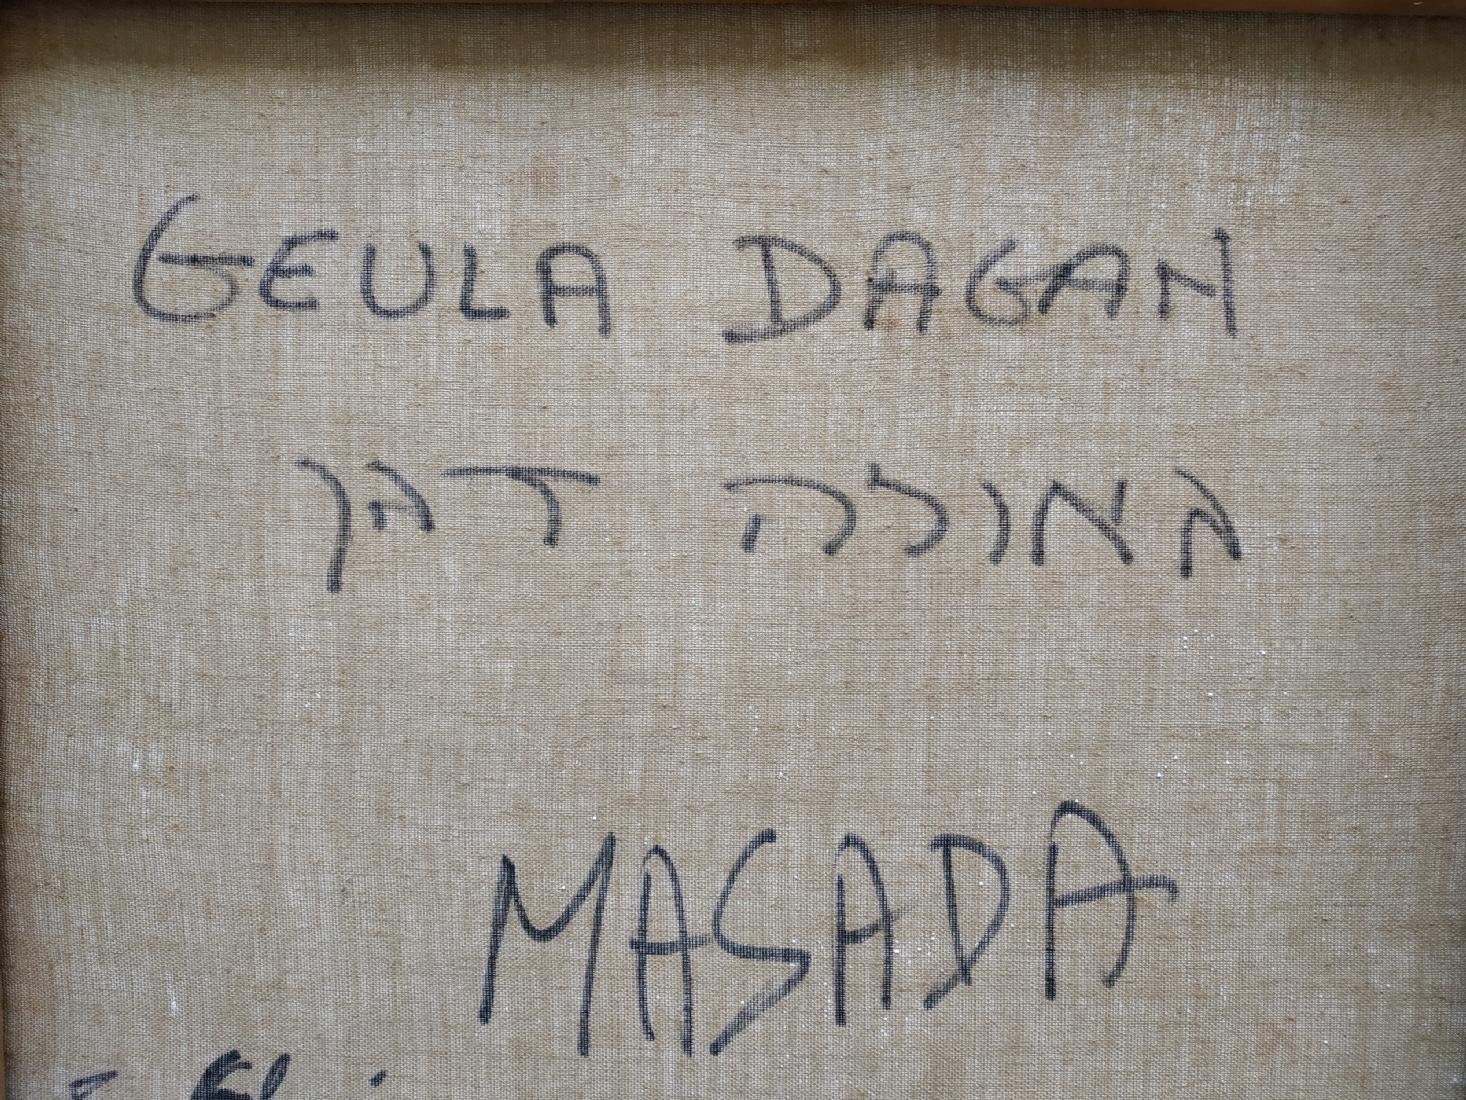 GEULA DAGAN
גאולה דגן
MASADA